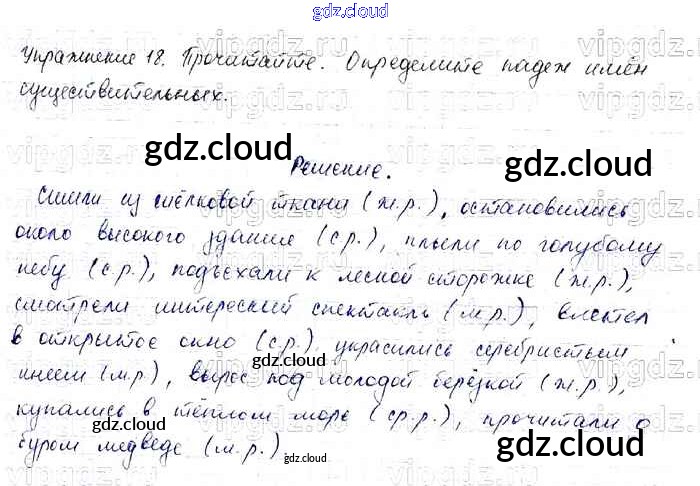 gdz.cloud
Упражнение 18. Прочитайте. Определите падеж имён
существительных.
gdz.cloud
gdz.cloud
Решение.
Сшили из шёлковой ткани (ж.р.), остановились
около высокого здания (ср.), плыли по голубому
небу (с.р.), подъехали к лесной сторожке (ж.р.),
смотрели интересный спектакль (м.р.), влетел
в открытое окно (с.р.), украсились серебристым
gdz.cloud
инеем (м.р.), вырос под молодой берёзкой (ж.р.),
купались в тёплом море (ср.р.), прочитали о
gdz.cloud
gdz.cloud
буром медведе (м.р.)
gdz.cloud